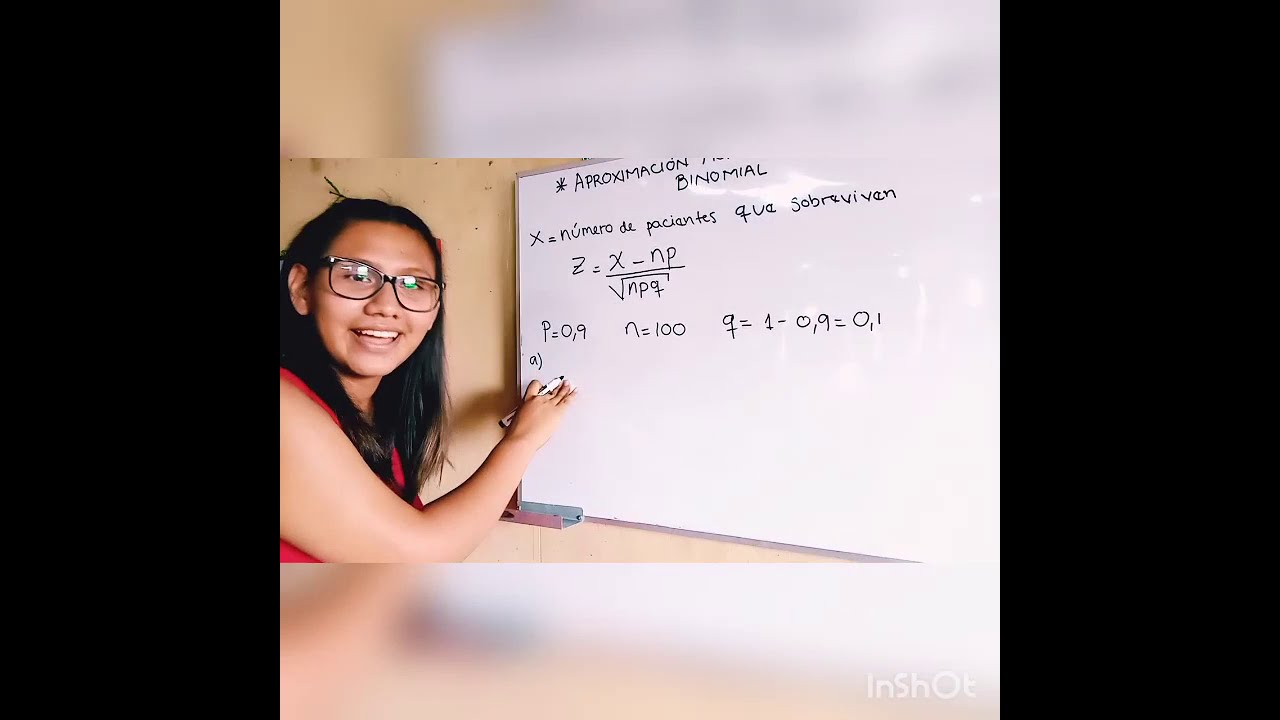 * APROXIMACIÓN
BINOMIAL
X = número de pacientes que sobreviven
Z = x - np
√npq
P=0,9 n=100 q= 1 - 0,9 = 0,1
a)
InShOt